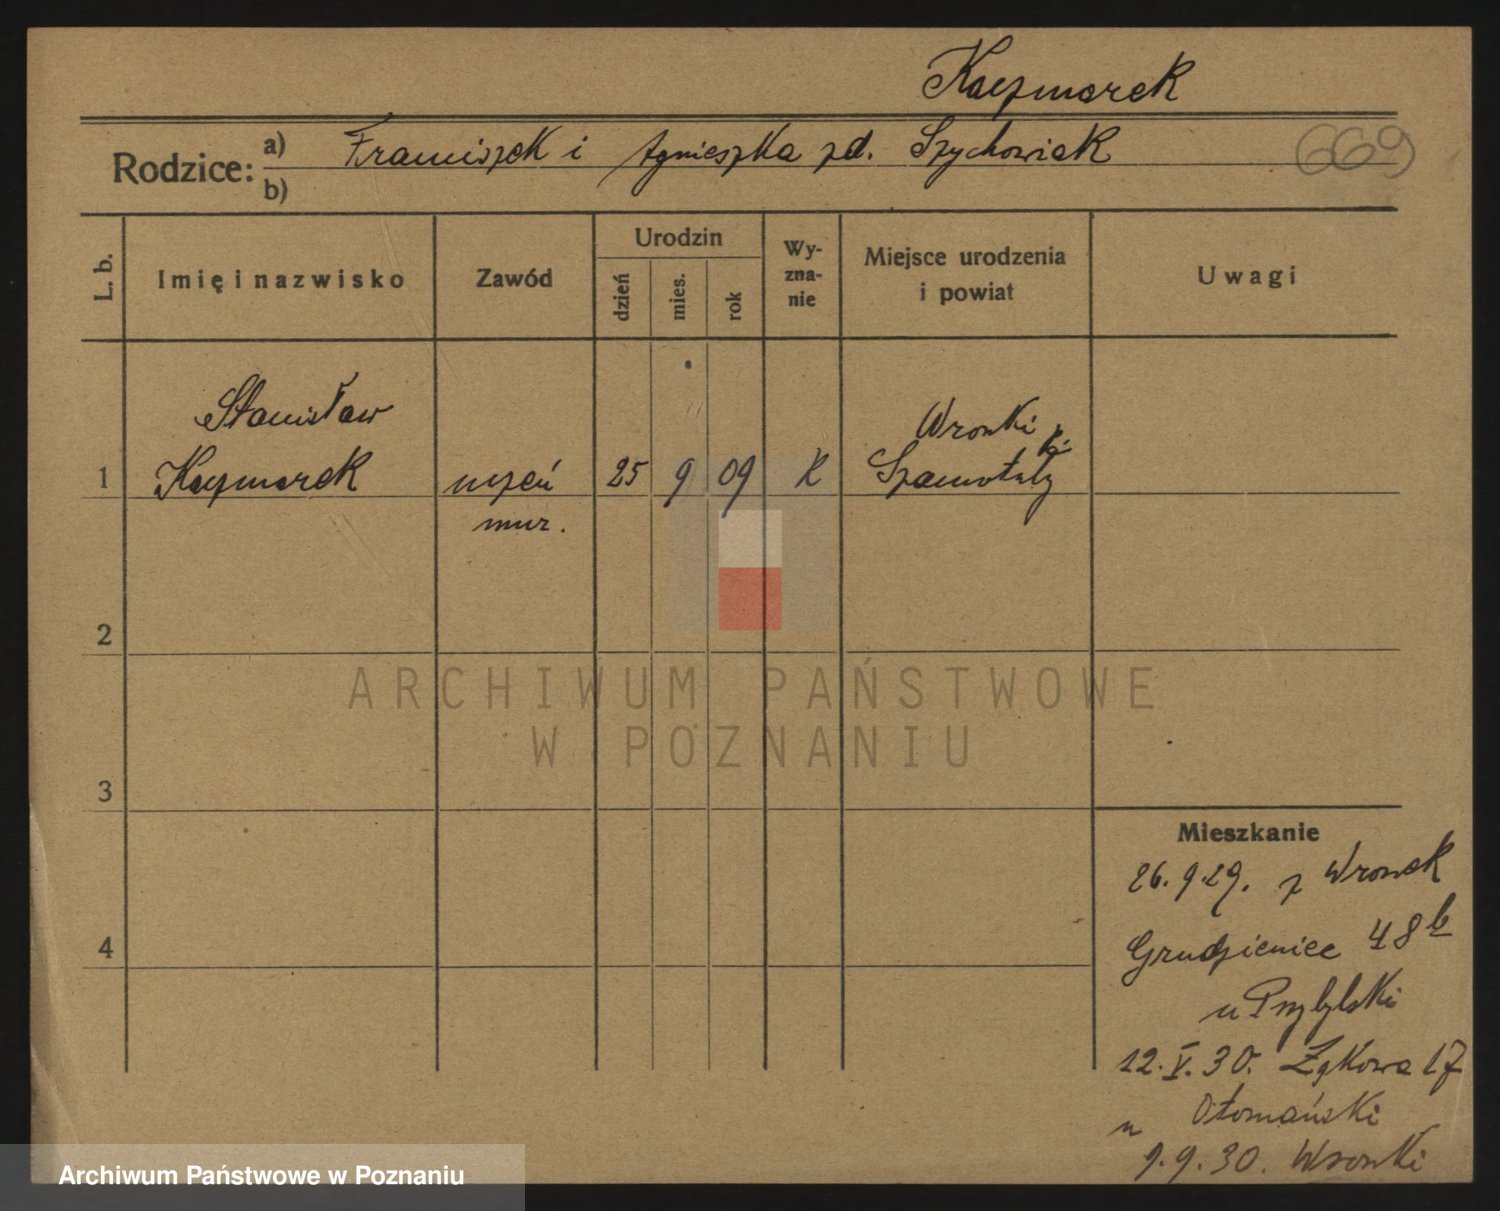 Kaczmarek
Rodzice: a) Franciszek i Agnieszka zd. Szychowiak
669
b)
L. b.
Imię i nazwisko
Zawód
Urodzin
dzień
mies.
rok
Wy-
zna-
nie
Miejsce urodzenia
i powiat
Uwagi
Stanisław
Wronki
1 Kaczmarek uczeń 25 9 09 K Szamotuły
mur.
2
ARCHIWUM PAŃSTWOWE
W POZNANIU
3
Mieszkanie
26.9.29. z Wronek
4
Grudzieniec 48 b
u Przybylski
12.V.30. Łąkowa 17
u Otomański
1.9.30. Wronki
Archiwum Państwowe w Poznaniu